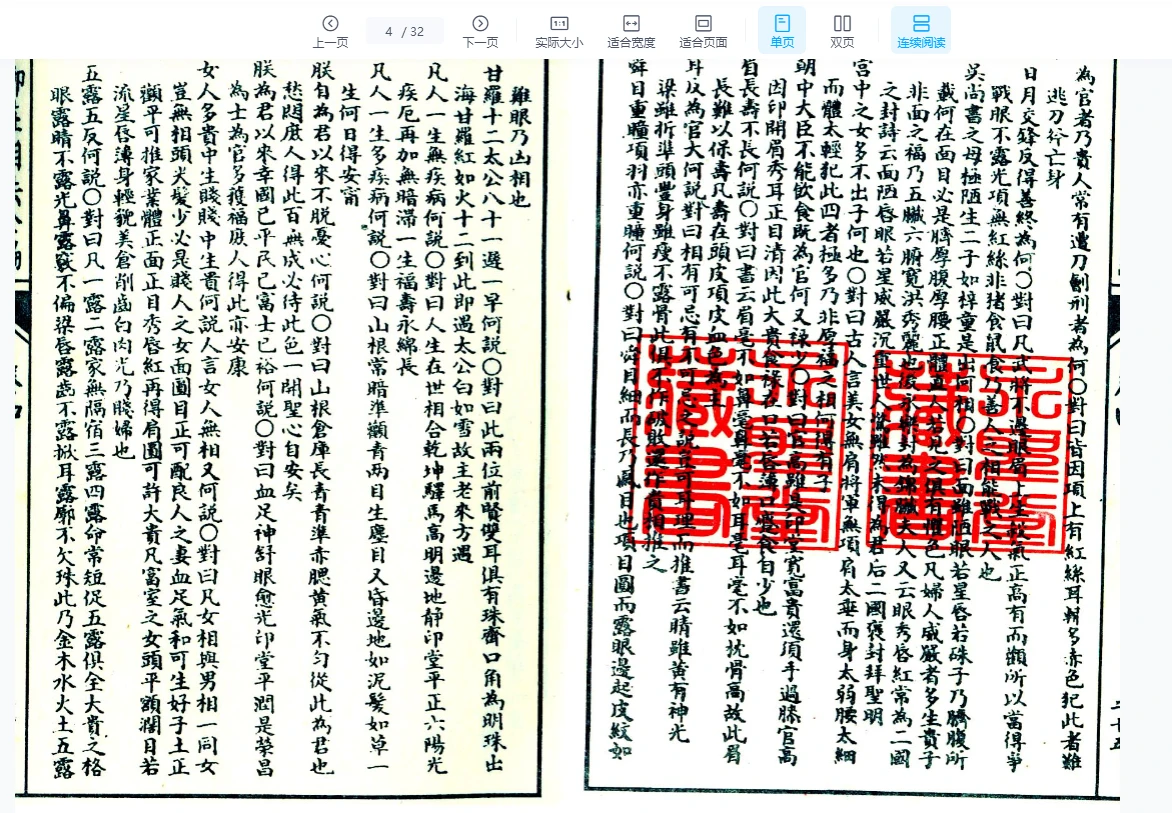 上一页
4 / 32
下一页
1:1
实际大小
适合宽度
适合页面
单页
双页
连续阅读
為官者乃貴人常有遭刀劊刑者為何〇對曰皆因項上有紅絲耳輪多赤色犯此者難
逃刀斧亡身
日月交鋒反得善終為何〇對曰凡武將不過眼眉上生殺氣正高有而顴所以當得爭
戰眼不露光項無紅絲非猪食鼠食乃善人之相能戰之人也
吳尚書之母極陋生二子如梓童是出何相〇對曰面雖陋眼若星唇若硃子乃臍腹所
載何在面目必是臍厚腹厚腰正體直人若見之俱有懼色凡婦人威嚴者多生貴子
非面之福乃五臟六腑寬洪秀麗也後永樂封為錦臟夫人又云眼秀唇紅常為二國
之封詩云面陋唇眼若星威嚴沉重世人驚雖然未得為君后二國褒封拜聖明
宮中之女多不出子何也〇對曰古人言美女無肩將軍無項肩太垂而身太弱腰太細
而體太輕犯此四者極多乃非厚福之相何得有子
朝中大臣不能飲食既為官何又祿少〇對曰官高雖是印堂寬富貴還須手過膝官高
因印開眉秀耳正目清因此大貴食祿在口若唇薄口偏食自少也
眉長壽不長何說〇對曰書云眉毫不如鼻毫鼻毫不如耳毫耳毫不如枕骨高故此眉
長難以保壽凡壽在頭皮項皮血色為主
耳反為官大何說對曰相有可忌有不可忌之說豈可耳理而推書云睛雖黃有神光
梁雖折準頭豐身雖瘦不露骨此俱不作破敗還作貴相推之
舜目重瞳項羽亦重瞳何說〇對曰舜目細而長乃鳳目也項目圓而露眼邊起皮紋如
雞眼乃凶相也
甘羅十二太公八十一選一早何說〇對曰此兩位前賢雙耳俱有珠齊口角為明珠出
海甘羅紅如火十二到此即遇太公白如雪故主老來方遇
凡人一生無疾病何說〇對曰人生在世相合乾坤驛馬高明邊地靜印堂平正六陽光
疾厄再加無暗滯一生福壽永綿長
凡人一生多疾病何説〇對曰山根常暗準顴青兩目生塵目又昏邊地如泥髮如草一
生何日得安甯
朕自為君以來不脱憂心何説〇對曰山根倉庫長青青準赤腮黄氣不匀從此為君也
愁悶庶人得此百無成必待此色一開聖心自安矣
朕為君以來幸國已平民已富士已裕何説〇對曰血足神舒眼愈光印堂平潤是榮昌
為士為官多獲福庶人得此亦安康
女人多貴中生賤賤中生貴何説人言女人無相又何説〇對曰凡女相與男相一同女
豈無相頭尖髮少必是賤人之女面圓目正可配良人之妻血足氣和可生好子土正
顴平可推家業體正面正目秀唇紅再得肩圓可許大貴凡富室之女頭平額濶目若
流星唇薄身輕貌美倉削齒白肉光乃賤婦也
五露五反何説〇對曰凡一露二露家無隔宿三露四露命常短促五露俱全大貴之格
眼露睛不露光鼻露竅不偏梁唇露齒不露掀耳露廓不欠珠此乃金木水火土五露